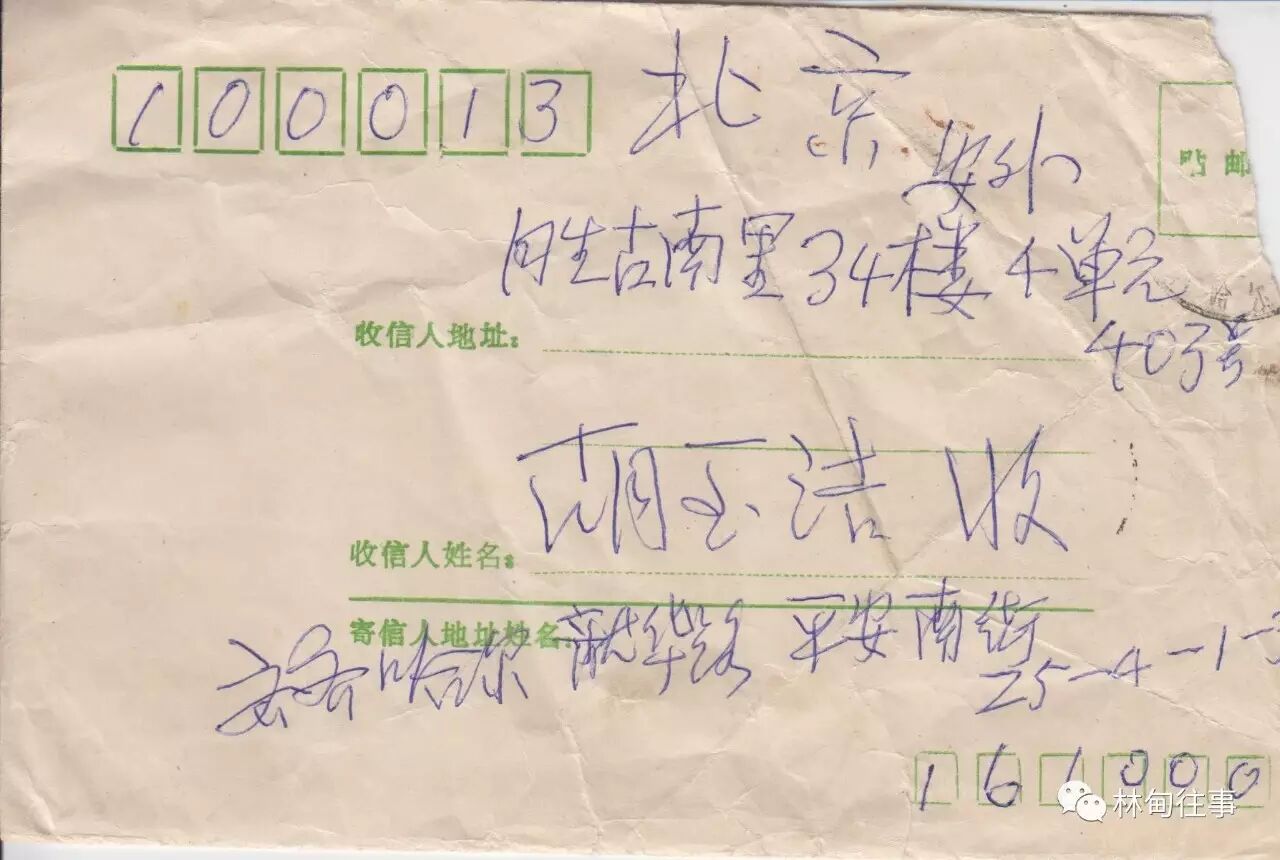 100013
北京
安外
胜古南里34楼4单元
403号
贴邮
哈尔
收信人地址:
胡玉洁 收
收信人姓名:
寄信人地址姓名:
齐哈尔 龙华路 平安南街
25-4-1-3
161000
林甸往事